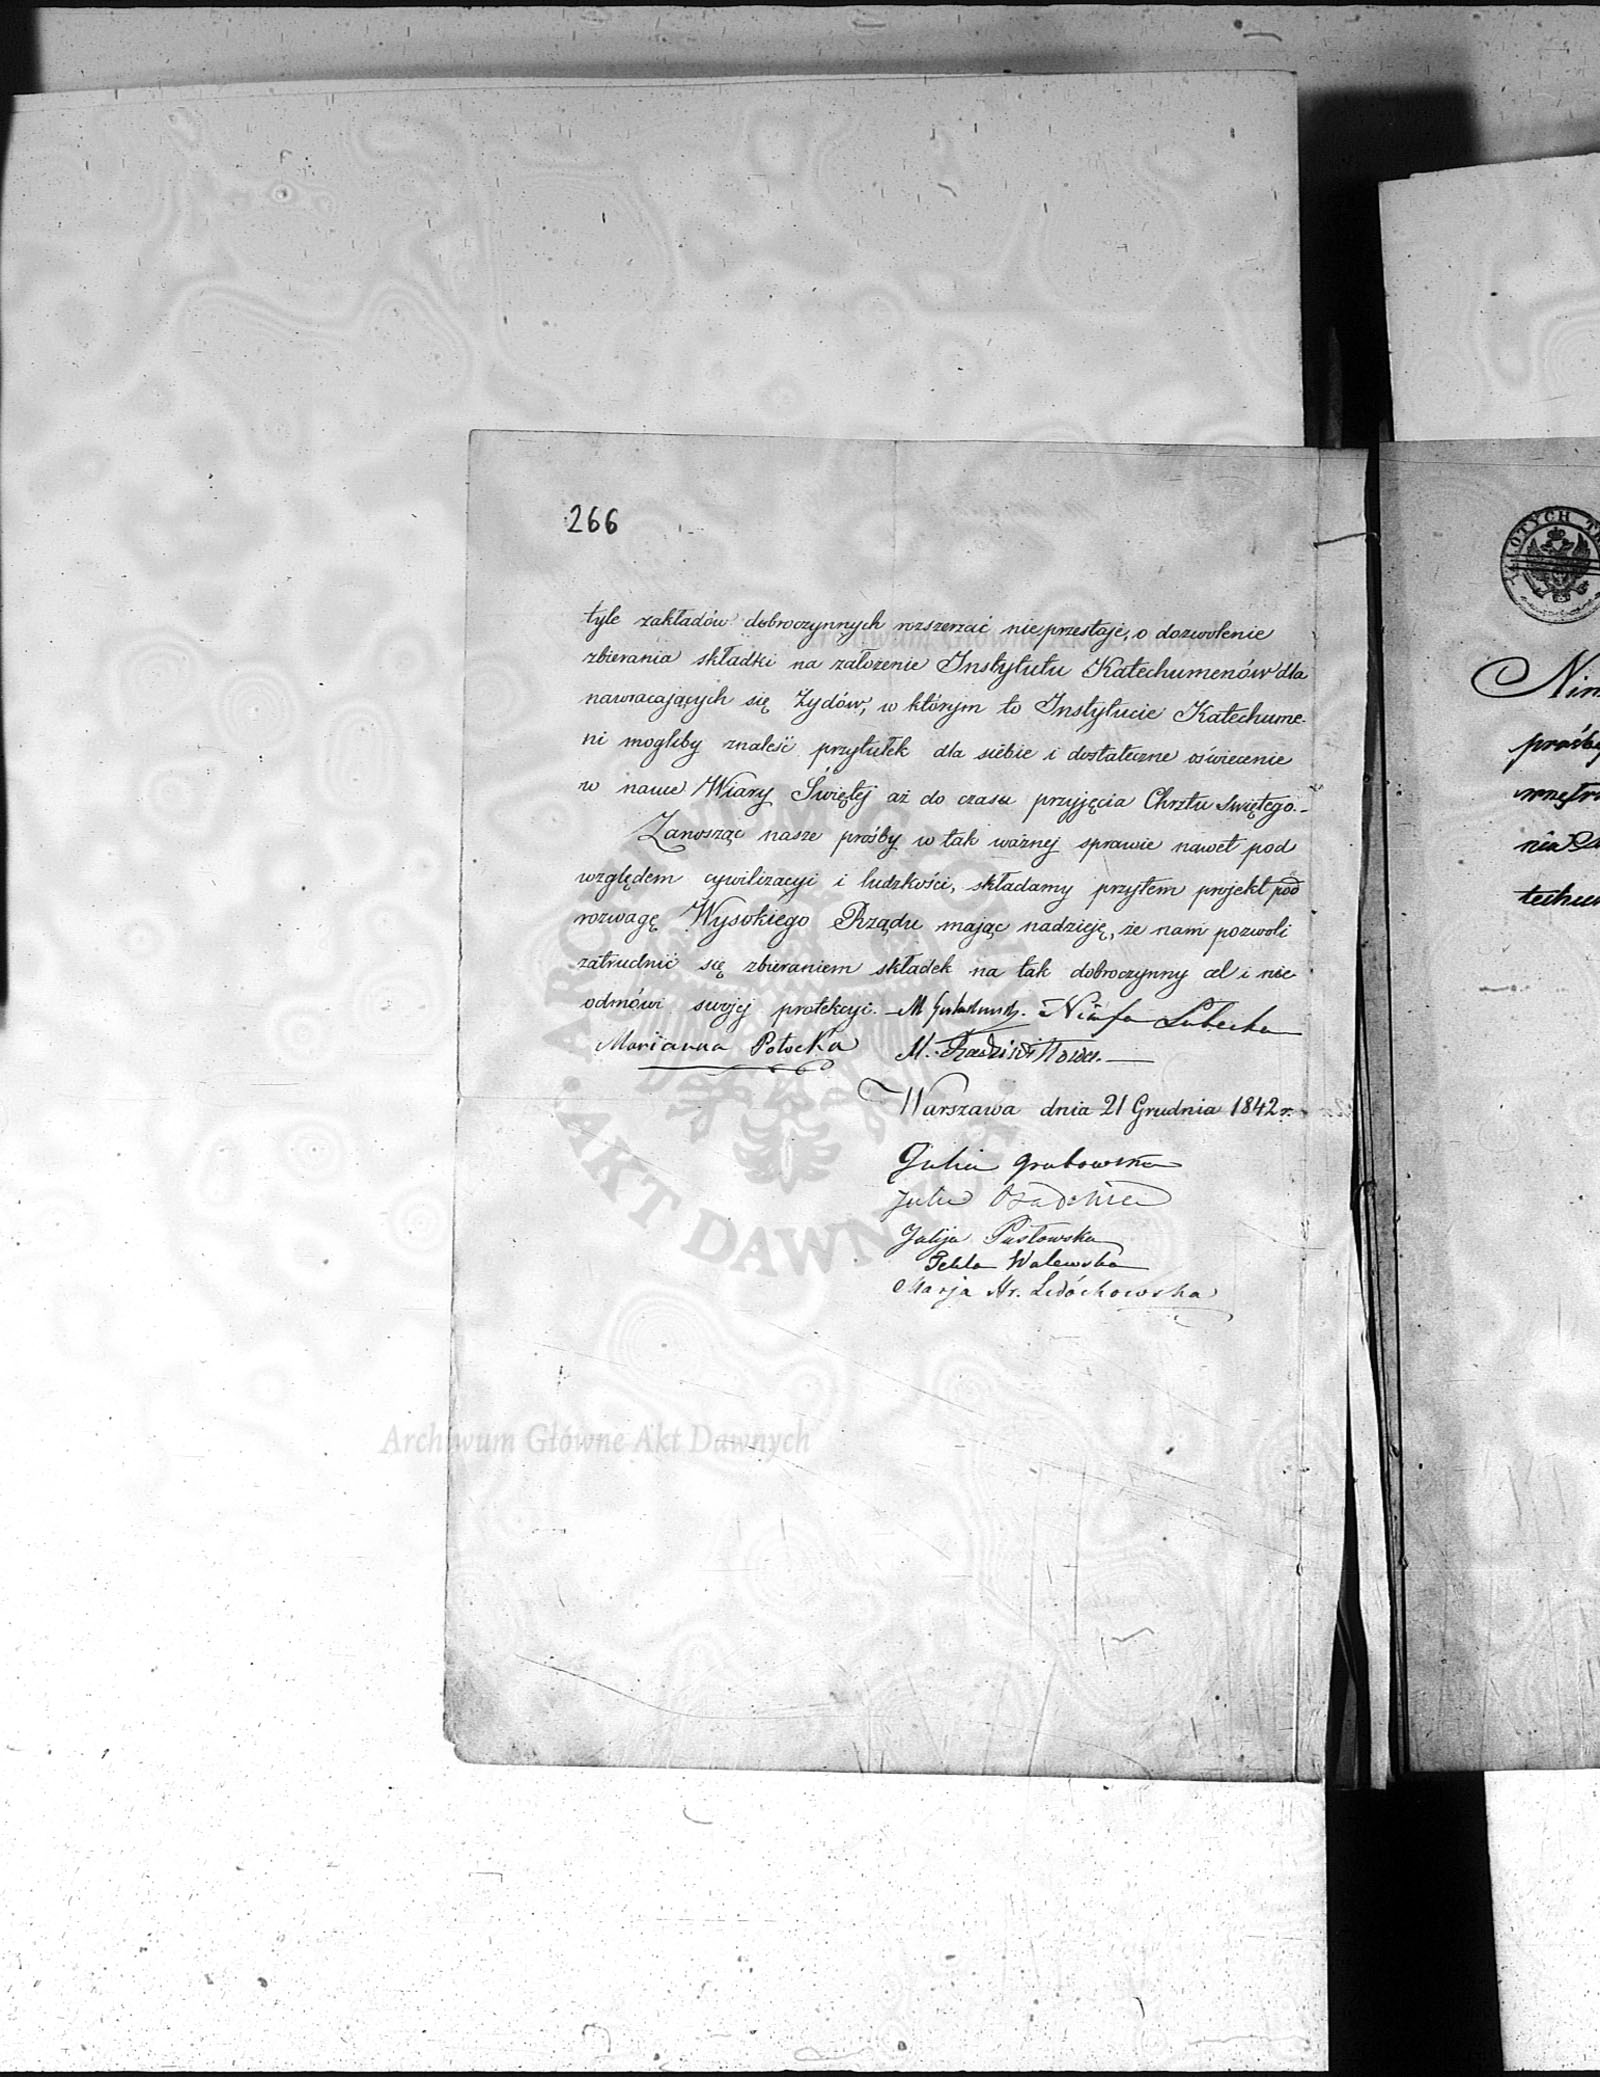 266
tyle zakładów dobroczynnych rozszerzać nieprzestaje, o dozwolenie
zbierania składki na założenie Instytutu Katechumenów dla
nawracających się Żydów, w którym to Instytucie Katechume-
ni mogliby znaleść przytułek dla siebie i dostateczne oświecenie
w nauce Wiary Świętej aż do czasu przyjęcia Chrztu świętego.-
Zanosząc nasze prośby w tak ważnej sprawie nawet pod
względem cywilizacyi i ludzkości, składamy przytem projekt pod
rozwagę Wysokiego Rządu mając nadzieję, że nam pozwoli
zatrudnić się zbieraniem składek na tak dobroczynny cel i nie
odmówi swojej protekcyi. - M Nimfa Lubecka
Marianna Potocka M. Radziwiłłowa. -
Warszawa dnia 21 Grudnia 1842 r.
Julia Grabowska
Julia
Julija Pusłowska
Tekla Walewska
Marja Hr. Ledóchowska
Archiwum Główne Akt Dawnych
ARCHIWUM GŁÓWNE AKT DAWNYCH
ZŁOTYCH
Nim
prośby
wnętrz
techum